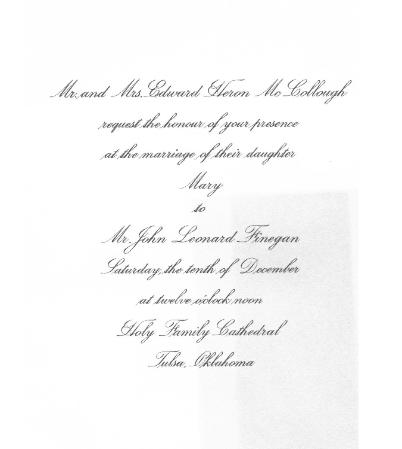 Mr. and Mrs. Edward Heron McCollough
request the honour of your presence
at the marriage of their daughter
Mary
to
Mr. John Leonard Finegan
Saturday, the tenth of December
at twelve o'clock noon
Holy Family Cathedral
Tulsa, Oklahoma